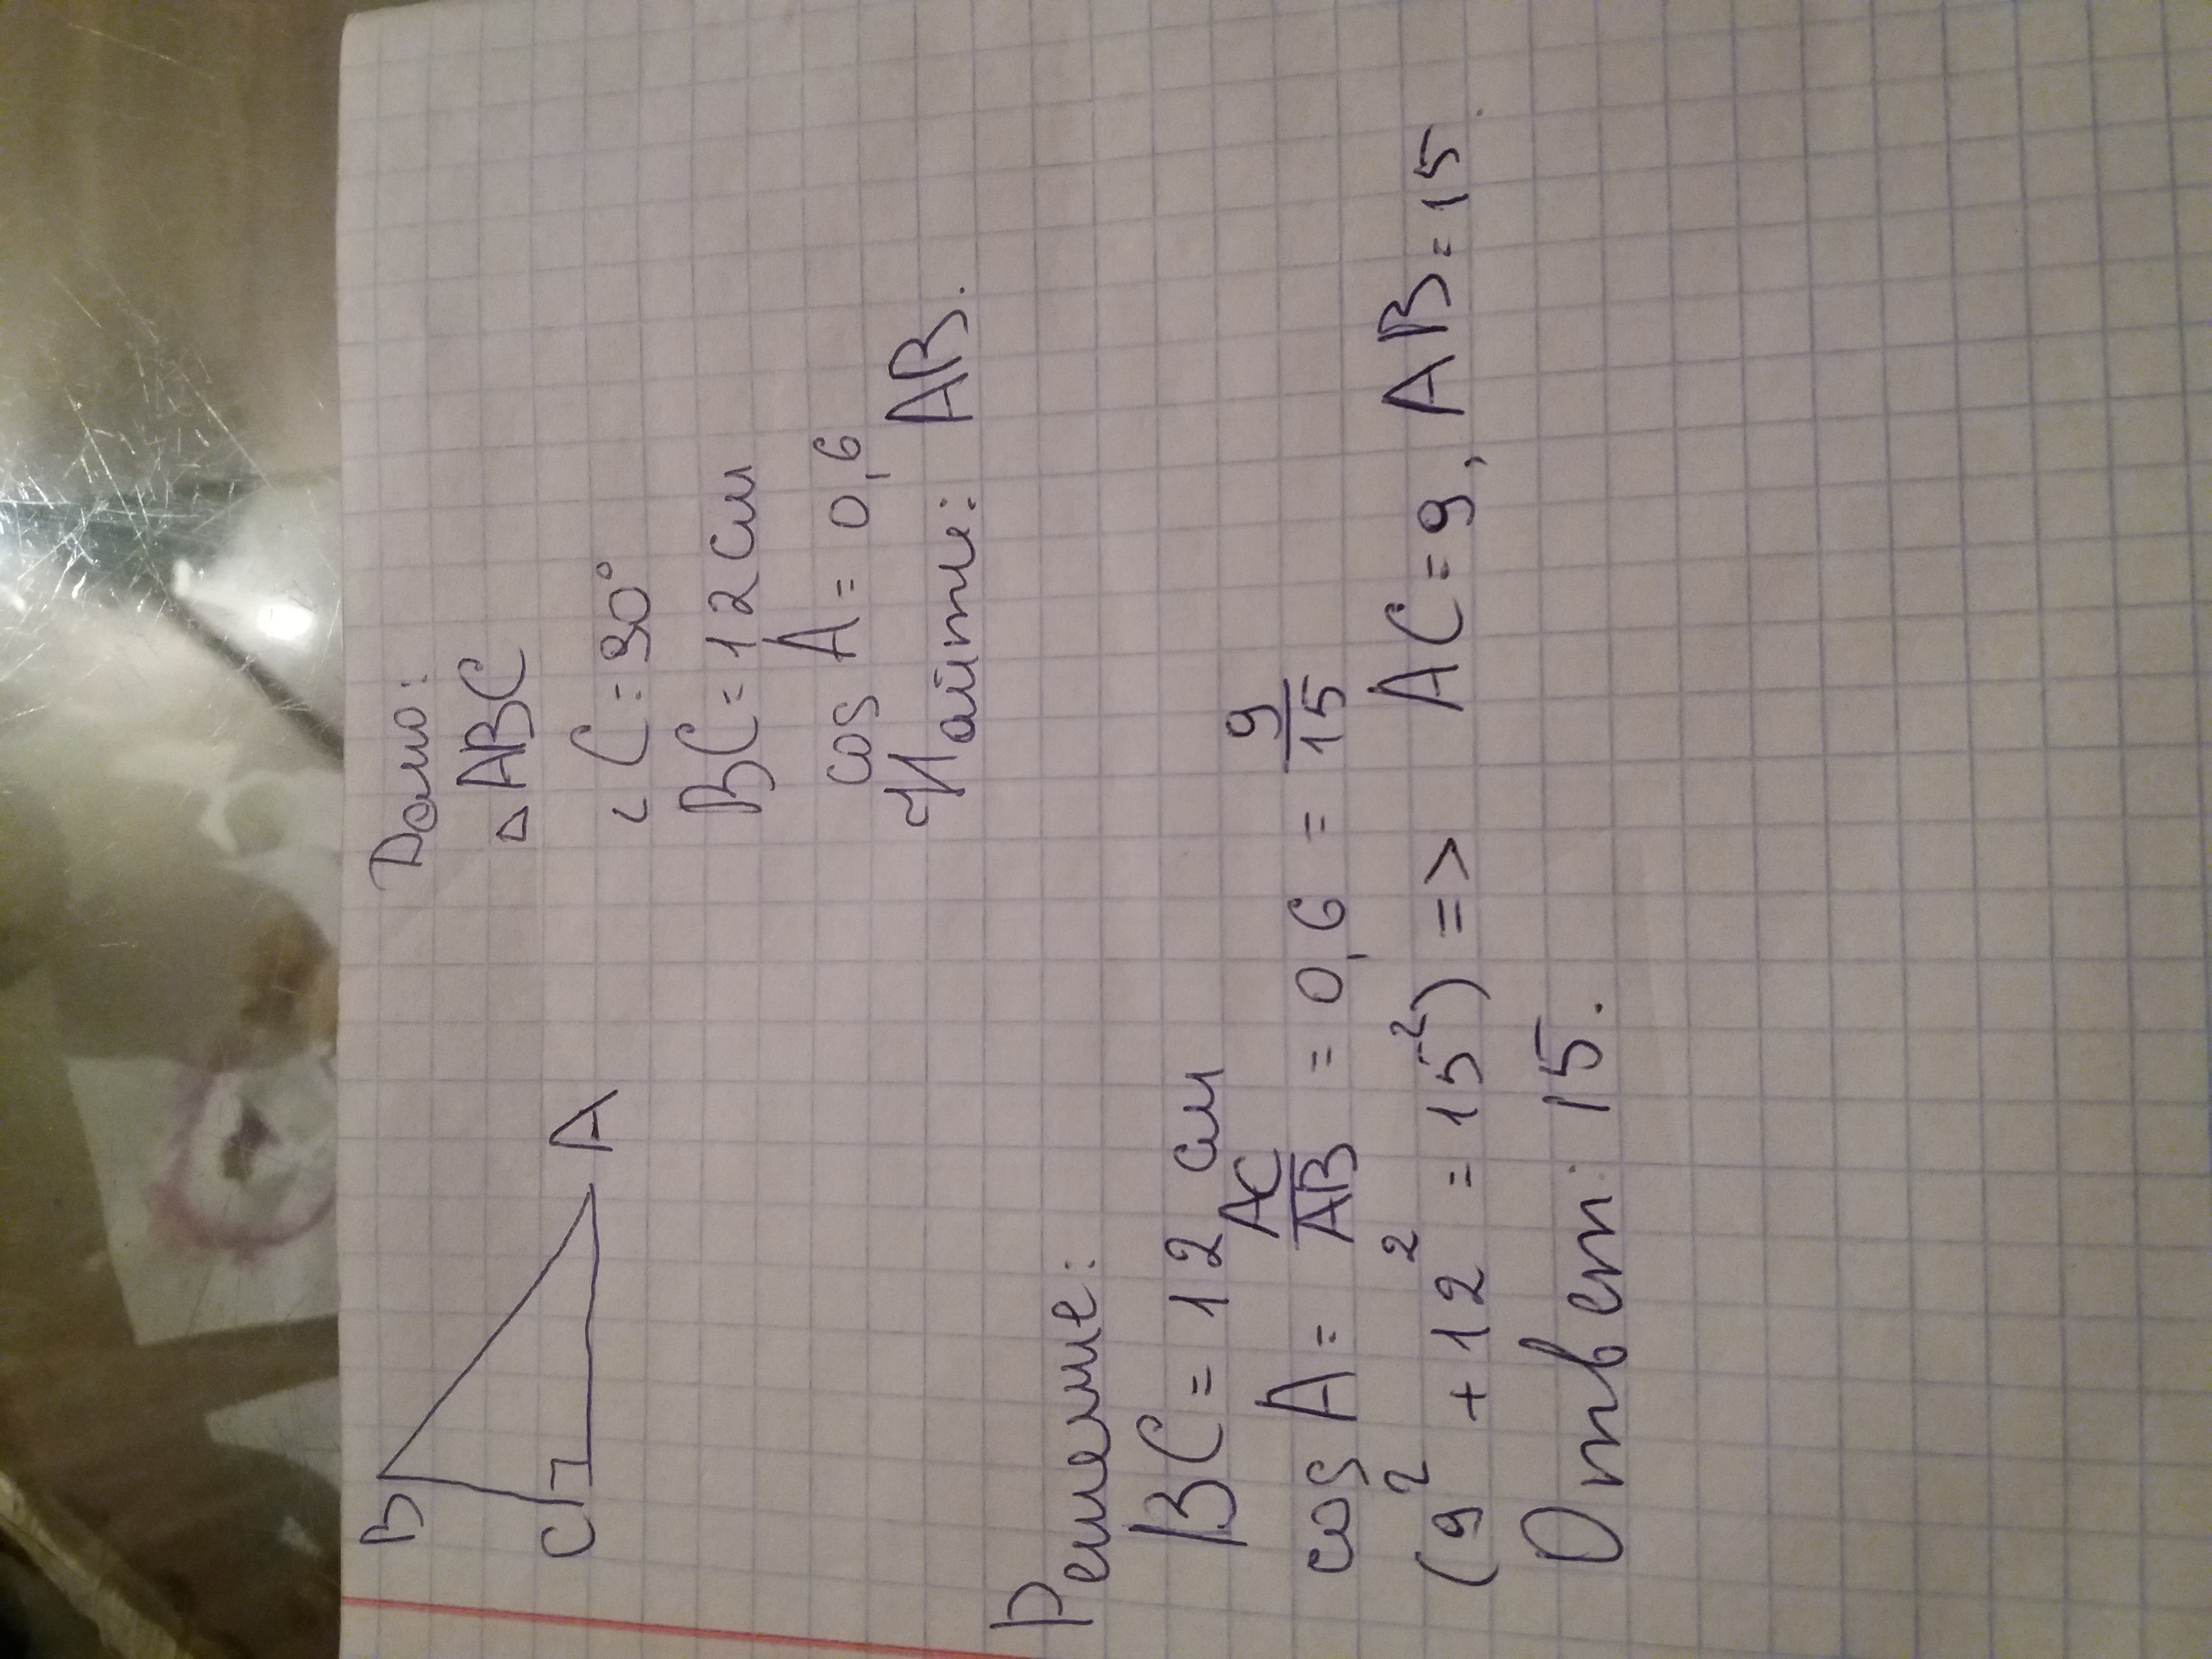 Дано:
△ABC
∠C=90°
BC=12см
cos A=0,6
Найти: AB.
B
C
A
Решение:
BC=12 см
cos A = AC/AB = 0,6 = 9/15
(9² + 12² = 15²) => AC=9, AB=15.
Ответ: 15.